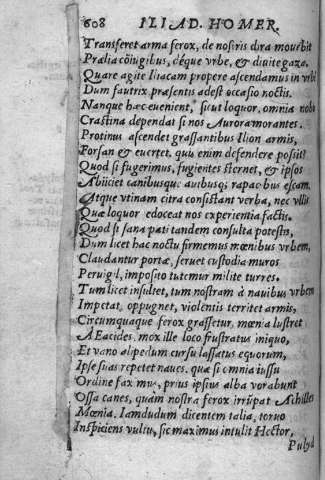 608 ILIAD. HOMER.
Transferet arma ferox, de nostris dira mouebit
Prælia cōiugibus, deque vrbe, & diuite gaza.
Quare agite Iliacam propere ascendamus in vrbē
Dum fautrix præsentis adest occasio noctis.
Nanque hæc euenient, sicut loquor, omnia nobis
Crastina dependat si nos Aurora morantes.
Protinus ascendet grassantibus Ilion armis,
Forsan & euertet. quis enim defendere possit?
Quod si fugerimus, fugientes sternet, & ipsos
Abijciet canibusque auibusq; rapacibus escam.
Atque vtinam citra constitant verba, nec vllis
Quæ loquor edoceat nos experientia factis.
Quod si sana pati tandem consulta potestis,
Dum licet hac noctu firmemus mœnibus vrbem,
Claudantur portæ, seruet custodia muros
Peruigil, imposito tutemur milite turres.
Tum licet insultet, tum nostram à nauibus vrbem
Impetat, oppugnet, violentis territet armis,
Circumquaque ferox grassetur, mœnia lustret
AEacides. mox ille loco frustratus iniquo,
Et vano alipedum cursu lassatus equorum,
Ipse suas repetet naues. quæ si omnia iussu
Ordine faximus, prius ipsius alba vorabunt
Ossa canes, quàm nostra ferox irrūpat Achilles
Mœnia. Iamdudum dicentem talia, toruo
Inspiciens vultu, sic maximus intulit Hector,
Polyd